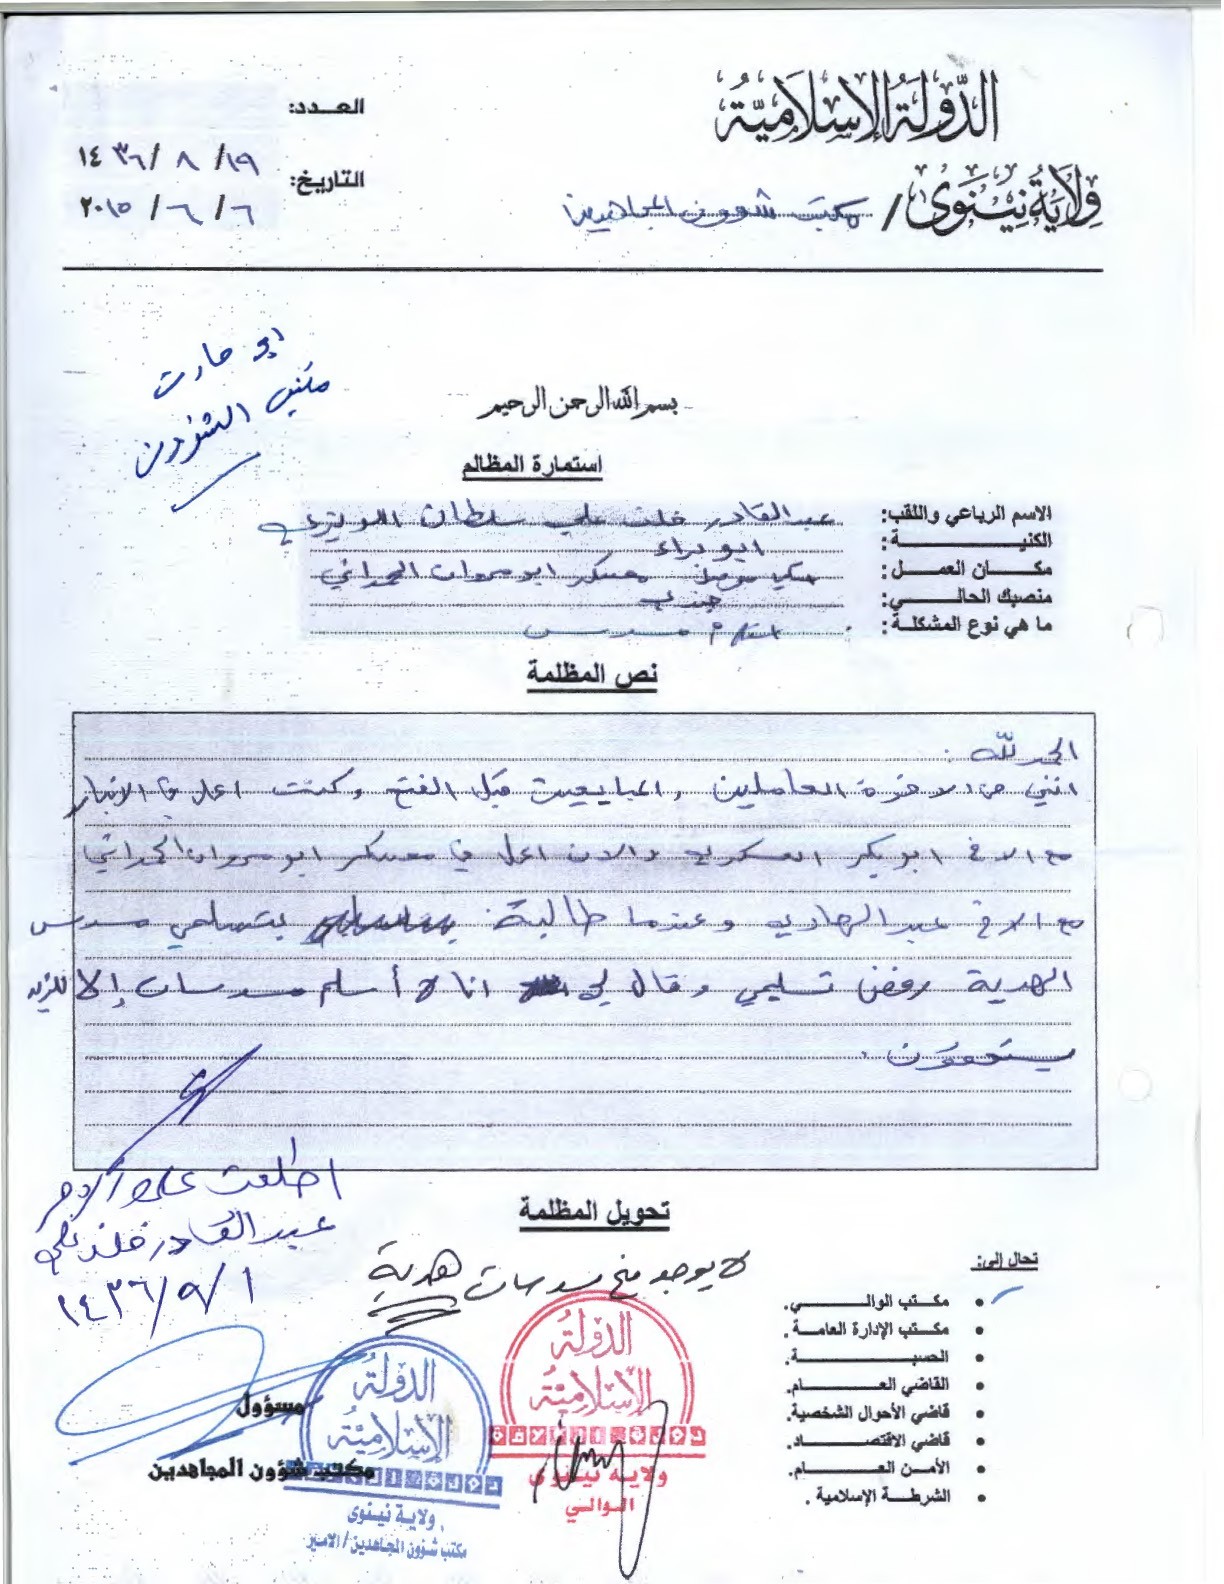 الدولة الإسلامية
ولاية نينوى / مكتب شؤون المجاهدين
العدد:
التاريخ: ١٩/ ٨ /١٤٣٦
٦ / ٦ / ٢٠١٥
ابو حارث
مكتب الشؤون
بسم الله الرحمن الرحيم
استمارة المظالم
الاسم الرباعي واللقب: عبد القادر خلف علي سلطان
الكنية: ابو براء
مكان العمل: معسكر ابو مروان الحمداني
منصبك الحالي: جندي
ما هي نوع المشكلة: استلام مسدس
نص المظلمة
الحمد لله:
انني من الاخوة العاملين وامبايعين قبل الفتح وكنت اعمل في الانبار
مع الاخ ابو بكر العسكري والان اعمل في معسكر ابو مروان الحمداني
مع الاخ عبد الهادي وعندما طالبة بتسلمي مسدس
الهدية رفض تسليمي وقال لي انا لا أسلم مسدسات إلا للذين
يستحقون.
اطلعت على الامر
عبد القادر خلف علي
١٤٣٦/٩/١
تحويل المظلمة
لا يوجد منح مسدسات هدية
تحال إلى:
• مكتب الوالي.
• مكتب الإدارة العامة.
• الحسبة.
• القاضي العام.
• قاضي الأحوال الشخصية.
• قاضي الاقتصاد.
• الأمن العام.
• الشرطة الإسلامية.
الدولة
الإسلامية
ولاية نينوى
الوالي
الدولة
الإسلامية
ولاية نينوى
مكتب شؤون المجاهدين / الامير
مسؤول
مكتب شؤون المجاهدين